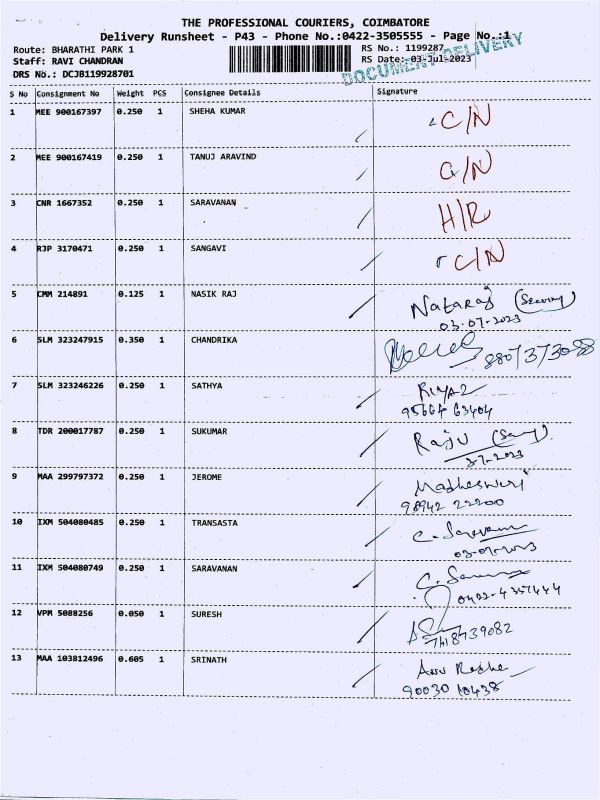 THE PROFESSIONAL COURIERS, COIMBATORE
Delivery Runsheet - P43 - Phone No.:0422-3505555 - Page No.:1
Route: BHARATHI PARK 1 RS No.: 1199287
Staff: RAVI CHANDRAN RS Date: 03-Jul-2023
DRS No.: DCJB119928701
DOCUMENT DELIVERY
S No Consignment No Weight PCS Consignee Details Signature
1 MEE 900167397 0.250 1 SHEHA KUMAR C/N
2 MEE 900167419 0.250 1 TANUJ ARAVIND C/N
3 CNR 1667352 0.250 1 SARAVANAN H/R
4 RJP 3170471 0.250 1 SANGAVI C/N
5 CMM 214891 0.125 1 NASIK RAJ Nataraj
03-07-2023
6 SLM 323247915 0.350 1 CHANDRIKA
7 SLM 323246226 0.250 1 SATHYA RIYAZ
95664 63404
8 TDR 200017787 0.250 1 SUKUMAR Raju
3-7-2023
9 MAA 299797372 0.250 1 JEROME Madheswari
98942 22200
10 IXM 504080485 0.250 1 TRANSASTA
03-07-2023
11 IXM 504080749 0.250 1 SARAVANAN
0422-4357444
12 VPM 5088256 0.050 1 SURESH
7418739082
13 MAA 103812496 0.605 1 SRINATH
90030 10438